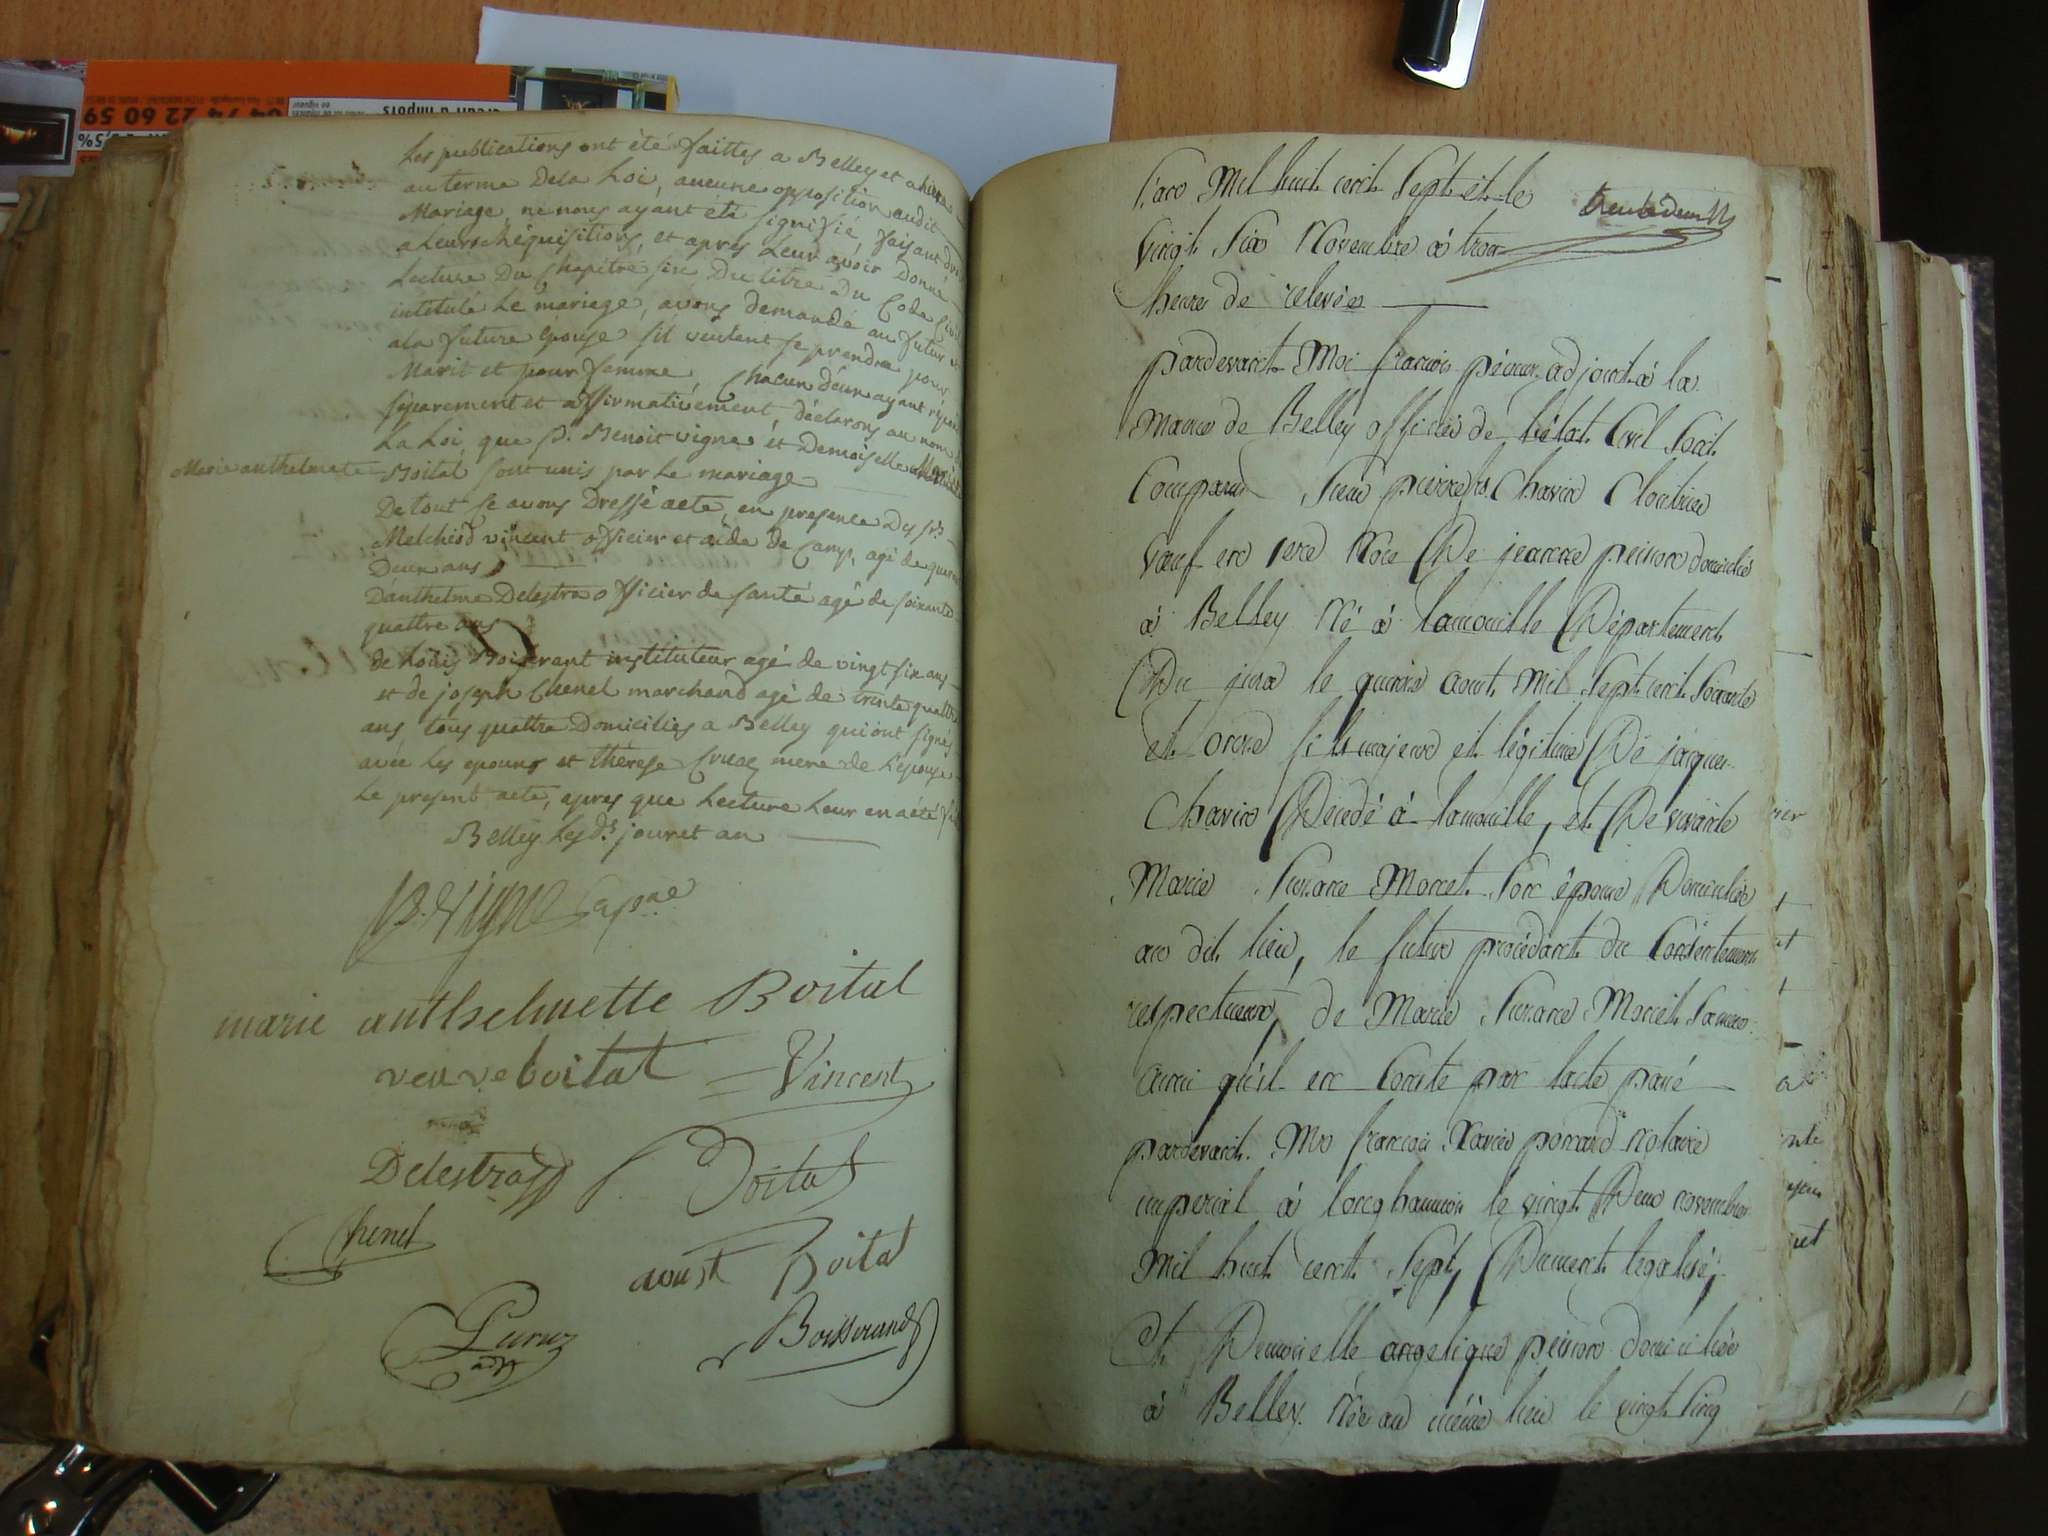 04 74 22 60 59
Les publications ont été faittes a Belley et a
au terme De la Loi, aucune opposition audit
Mariage, ne nous ayant été signifié faisant droit
a Leurs Réquisitions, et apres Leur avoir Donné
Lecture Du Chapitre six Du titre Du Code Civil
intitulé Le mariage, avons demandé au futur et
a la future épouse s'il veulent se prendre pour
Marit et pour femme, Chacun d'eux ayant répondu
séparement et affirmativement déclarons au nom de
La Loi, que Sr. Benoit vigne et Demoiselle
Marie anthelmette Boital sont unis par Le mariage
De tout ce avons Dressé acte, en presence Des Srs
Melchiod vincent officier et aide de Camp, agé de quarante
Deux ans
D'anthelme Delestra officier de santé agé de soixante
quattre ans
de Loüis Boiserant instituteur agé de vingt six ans
et de joseph Chenel marchand agé de trente quattre
ans tous quattre Domiciliés a Belley qui ont signés
avec Les epoux et thérese mere de L'epouse
Le present acte, apres que Lecture Leur en a été
Belley Les ds. jour et an
B. Vigne Capne
marie anthelmette Boital
veuve boital Vincent
Delestra Boital
Chenel
aoust Boital
Boisserand
adjt
L'an Mil huit cent Sept et le
trente deux
Vingt Six Novembre à trois
heures de relevée
pardevant Moi françois adjoint à la
Mairie de Belley officier de l'état Civil Soit
Comparu Sieur pierre Chavin Cloutier
Veuf en 1ere Noce De jeanne peisson domicilié
à Belley Né à lamouille Département
Du jura le quinze aout Mil Sept cent Soixante
et onze fils majeur et légitime De jacques
Chavin Décédé à lamouille, et De vivante
Marie Suzanne Morret Son épouse Domiciliée
au dit lieu, le futur procédant du Consentement
respectueux, de Marie Suzanne Morret Sa mere
ainsi qu'il en Conste par l'acte passé
pardevant Me françois Xavier ponard Notaire
imperial à longchaumois le vingt Deux novembre
Mil huit cent Sept, Dument légalisé;
Et Demoiselle angelique peisson domiciliée
à Belley Née au même lieu le vingt Cinq